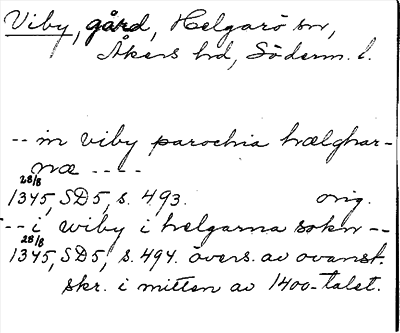 Viby, gård, Helgarö sn,
Åkers hd, Söderm. l.
-- in viby parochia hælghar-
næ ----
28/8
1345, SD5, s. 493. orig.
-- i wiby i helgarna sokn --
28/8
1345, SD5, s. 494. övers. av ovanst.
skr. i mitten av 1400-talet.